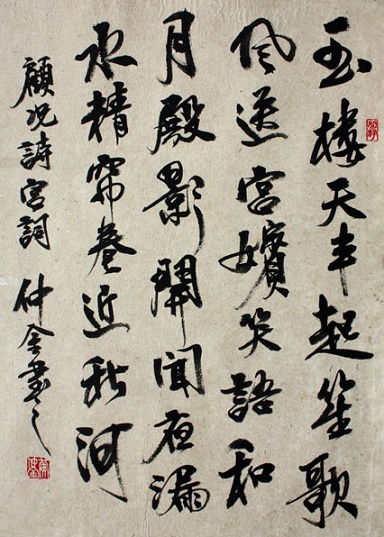 玉樓天半起笙歌
风送宮嬪笑語和
月殿影開聞夜漏
水精帘卷近秋河
顧况詩宮詞 仲金書之